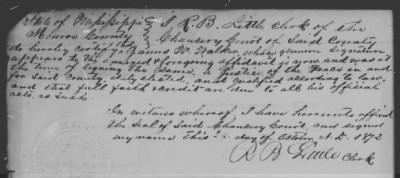 State of Mississippi } I R.B. Little clerk of the
Monroe County } Chancery Court of Said County
do hereby certify James W. Walker, whose genuine Signature
appears to the annexed & foregoing affidavit is now and was at
the time of signing the same, a Justice of the Peace in and
for Said County, duly elected and qualified according to law,
and that full faith & credit are due to all his official
acts as Such.
In witness whereof I have hereunto affixed
the Seal of Said Chancery Court, and signed
my name this day of October A.D. 1872
R B Little Clerk